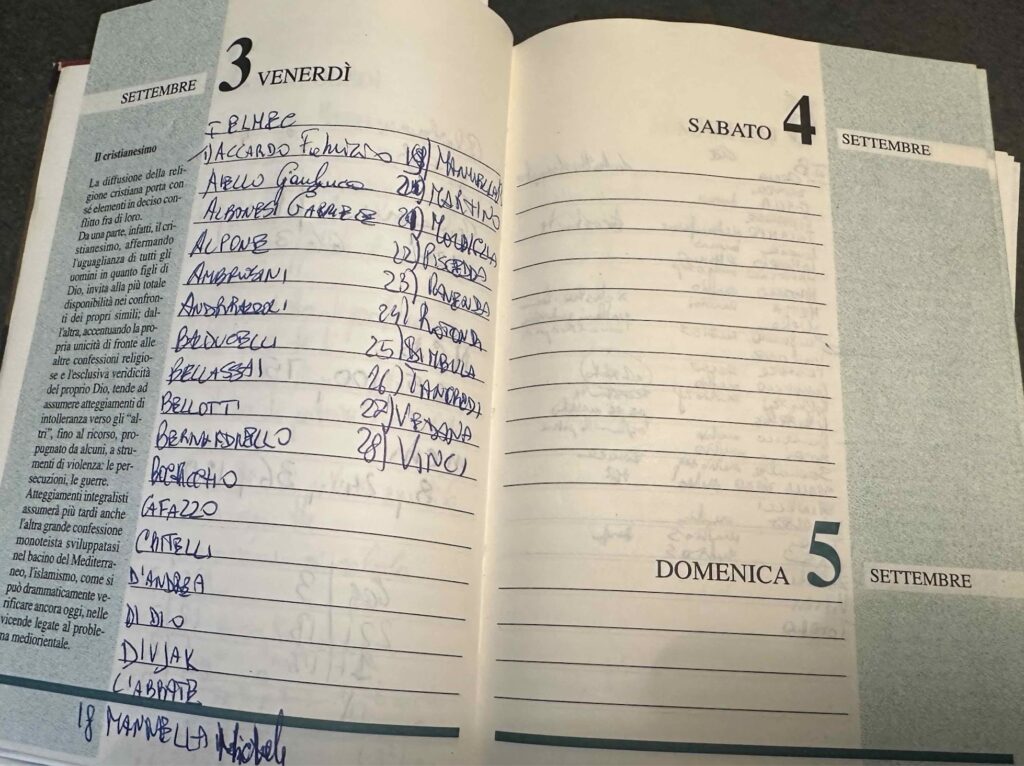 SETTEMBRE
3 VENERDÌ
Il cristianesimo
La diffusione della reli-
gione cristiana porta con
sé elementi in deciso con-
flitto fra di loro.
Da una parte, infatti, il cri-
stianesimo, affermando
l'uguaglianza di tutti gli
uomini in quanto figli di
Dio, invita alla più totale
disponibilità nei confron-
ti dei propri simili; dal-
l'altra, accentuando la pro-
pria unicità di fronte alle
altre confessioni religio-
se e l'esclusiva veridicità
del proprio Dio, tende ad
assumere atteggiamenti di
intolleranza verso gli "al-
tri", fino al ricorso, pro-
pugnato da alcuni, a stru-
menti di violenza: le per-
secuzioni, le guerre.
Atteggiamenti integralisti
assumerà più tardi anche
l'altra grande confessione
monoteista sviluppatasi
nel bacino del Mediterra-
neo, l'islamismo, come si
può drammaticamente ve-
rificare ancora oggi, nelle
vicende legate al proble-
ma mediorientale.
TELMEC
D'ACCARDO Fabrizio
AIELLO Gianfranco
ALBONESI GABRIELE
ALPONE
AMBROSANI
BALDUCELLI
BELLASSAI
BELLOTTI
BERNARDNELLO
BOGACCHIO
CAFAZZO
CANTELLI
D'ANDREA
DI DIO
DIVJAK
L'ABBATE
18 MANNELLA Michele
19) MANNELLA
20) MARTINO
21)
22) PISCEDDA
23)
24) ROTONDA
25) BIMBULA
26) TANCREDI
27) VERDANA
28) VINCI
SABATO 4
SETTEMBRE
DOMENICA 5
SETTEMBRE